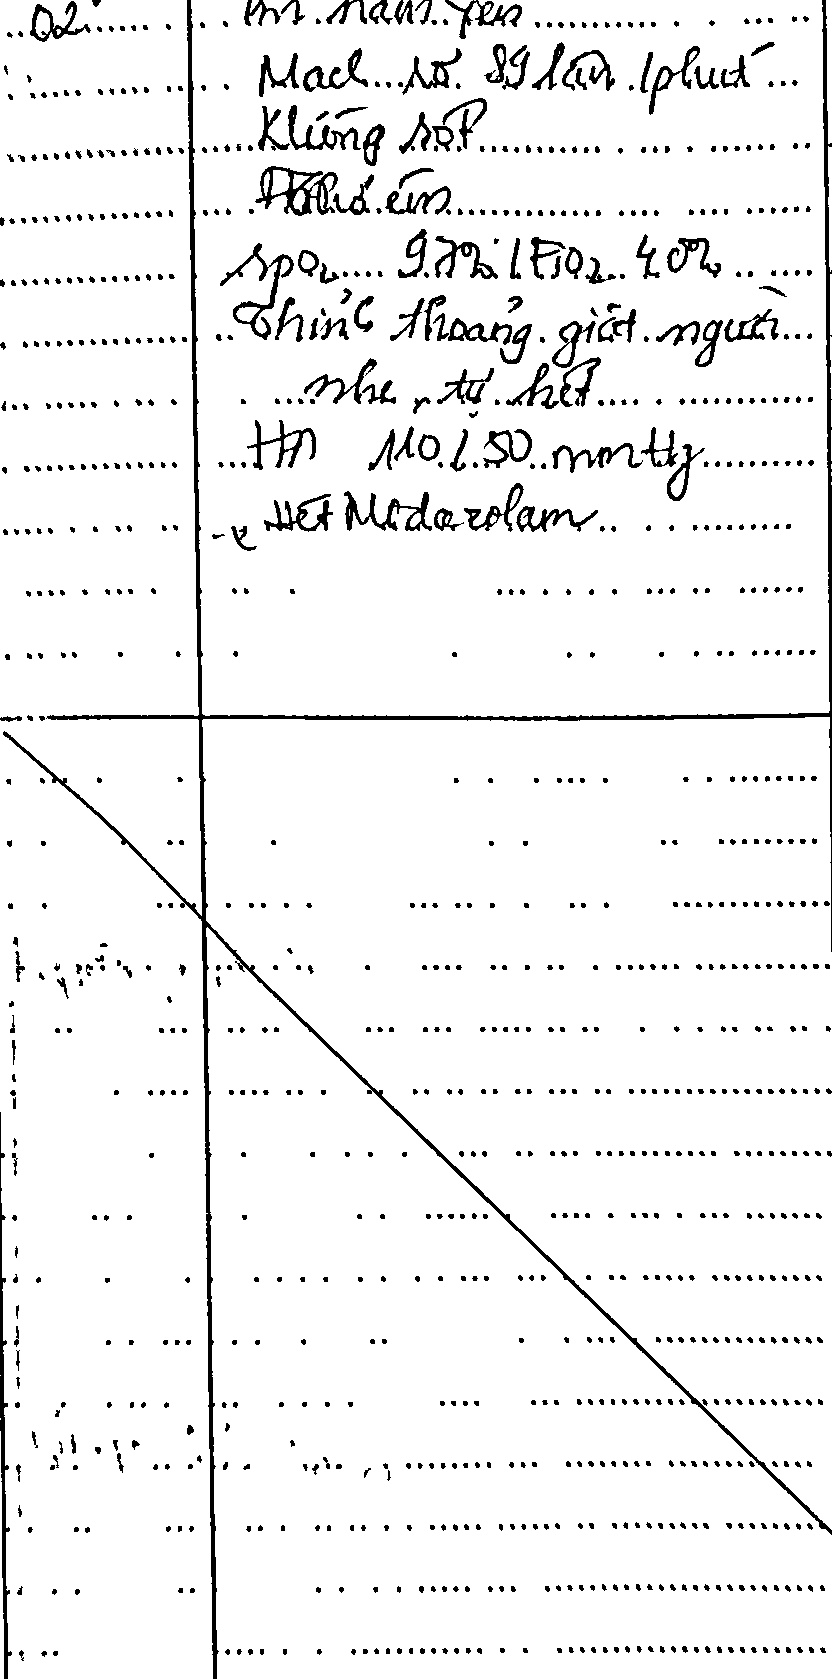 02 Bn nằm yên
Mạch rõ 89 lần /phút
Không sốt
Thở êm
SpO2 97% / FiO2 40%
Thỉnh thoảng giật người
nhẹ, tự hết
HA 110/50 mmHg
Hết Midazolam